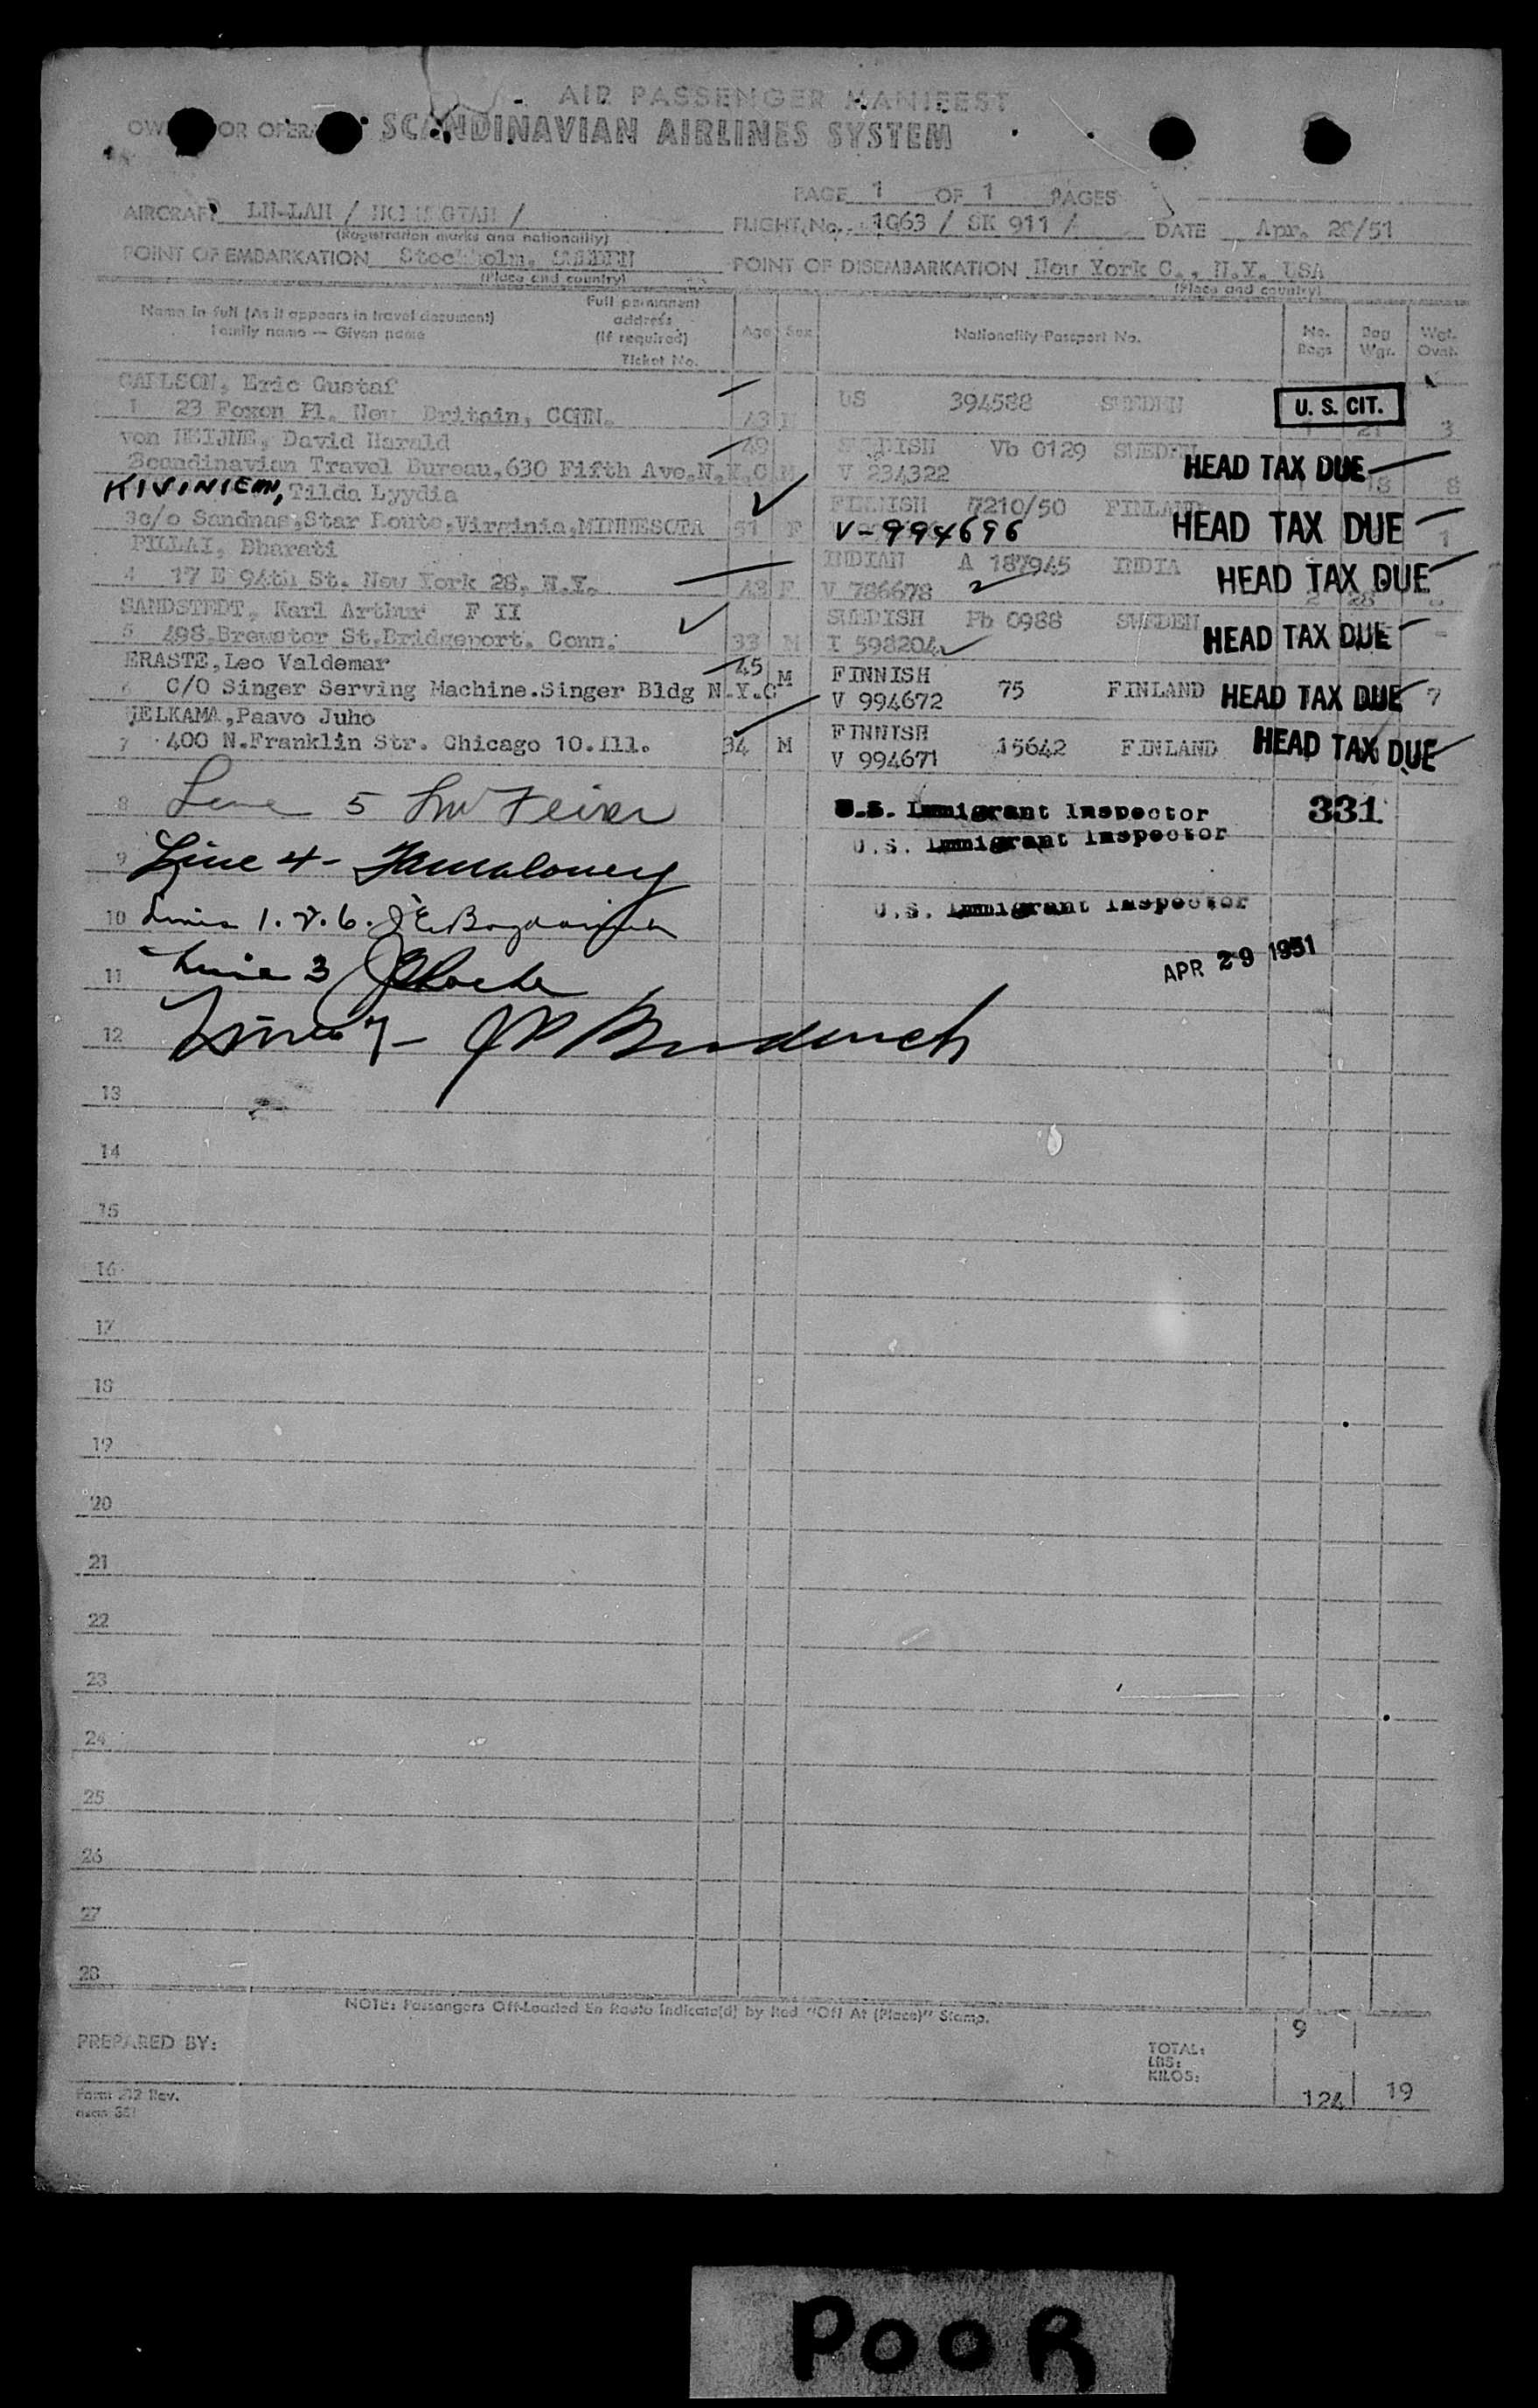 AIR PASSENGER MANIFEST
OR OPERA SCANDINAVIAN AIRLINES SYSTEM
PAGE 1 OF 1 PAGES
AIRCRAFT LN-LAH / /
(Registration marks and nationality)
FLIGHT No. 1Q63 / SK 911 / DATE Apr. 28/51
POINT OF EMBARKATION Stockholm, SWEDEN
(Place and country)
POINT OF DISEMBARKATION New York C., N.Y. USA
(Place and country)
Name in full (As it appears in travel document)
Family name — Given name
Full permanent
address
(If required)
Ticket No.
Age Sex Nationality-Passport No. No. Bags Bag Wgt. Wgt. Ovwt.
CARLSON, Eric Gustaf
1 23 Foxon Pl. New Britain, CONN. 43 M US 394588 SWEDEN U. S. CIT. 1 21 3
von HEIJNE, David Harald 49 SWEDISH Vb 0129 SWEDEN
Scandinavian Travel Bureau,630 Fifth Ave.N.Y.C M V 234322 HEAD TAX DUE 18 8
KIVINIEMI, Tilda Lyydia FINNISH 7210/50 FINLAND
3c/o Sandnas,Star Route,Virginia,MINNESOTA 51 F V-994696 HEAD TAX DUE 1
PILLAI, Bharati INDIAN A 187945 INDIA
4 17 E 94th St. New York 28, N.Y. 43 F V 786678 HEAD TAX DUE 2 28
SANDSTEDT, Karl Arthur F II SWEDISH Fb 0988 SWEDEN
5 498 Brewster St.Bridgeport. Conn. 33 M I 598204 HEAD TAX DUE -
ERASTE,Leo Valdemar 45 M FINNISH
6 C/O Singer Serving Machine.Singer Bldg N.Y.C V 994672 75 FINLAND HEAD TAX DUE 7
VELKAMA,Paavo Juho FINNISH
7 400 N.Franklin Str. Chicago 10.Ill. 34 M V 994671 15642 FINLAND HEAD TAX DUE
8 Line 5 U.S. Immigrant Inspector 331
U.S. Immigrant Inspector
9 Line 4 -
10 Lines 1. 2. 6. U.S. Immigrant Inspector
11 Line 3 APR 29 1951
12 Line 7 -
13
14
15
16
17
18
19
20
21
22
23
24
25
26
27
28
NOTE: Passengers Off-Loaded En Route Indicate(d) by Red "Off At (Place)" Stamp.
PREPARED BY:
TOTAL: 9
LBS:
KILOS: 124 19
Form Rev.
POOR